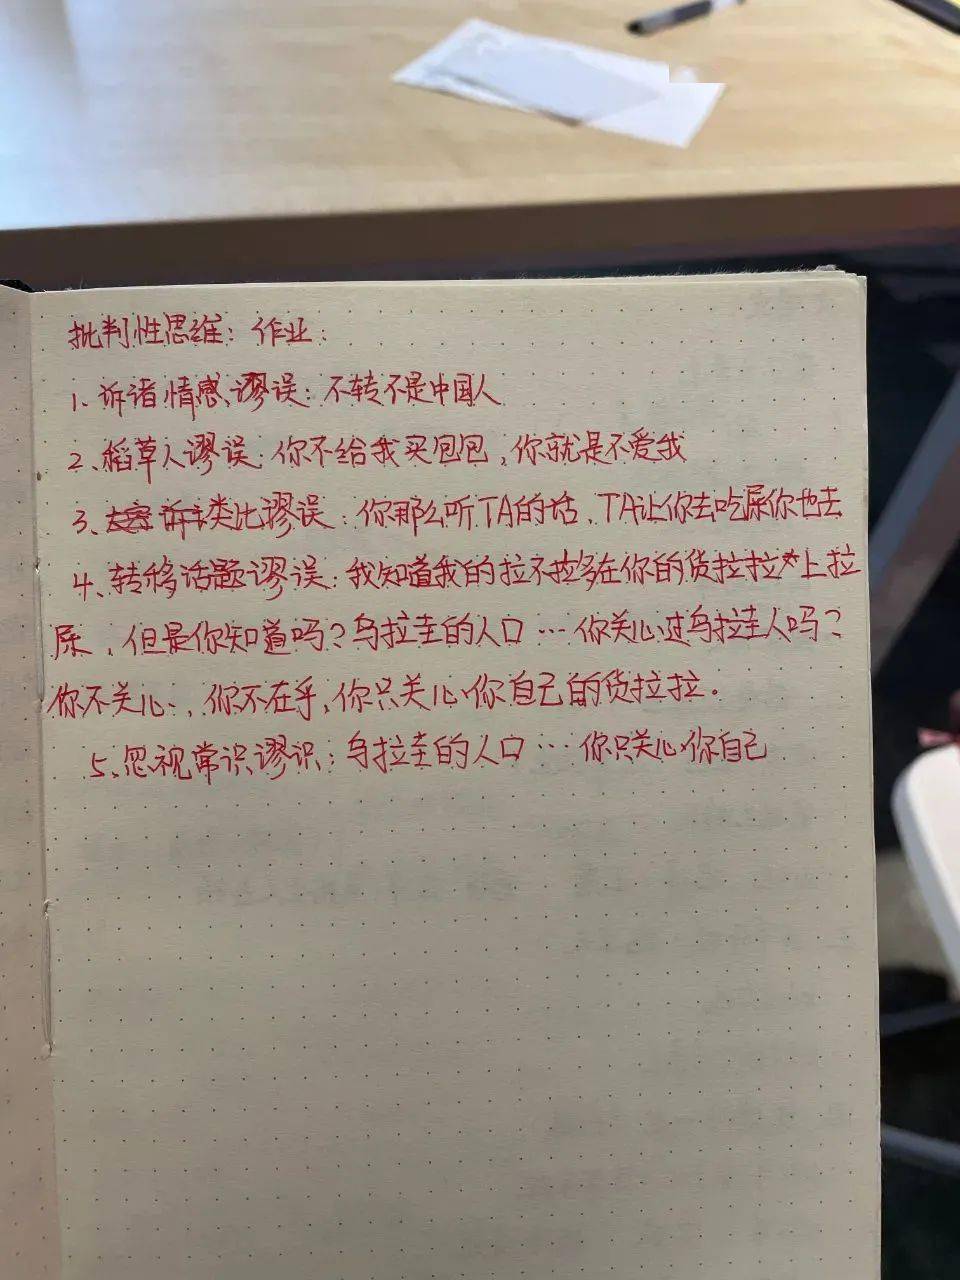 批判性思维：作业：
1、诉诸情感谬误：不转不是中国人
2、稻草人谬误：你不给我买包包，你就是不爱我
3、类比谬误：你那么听TA的话，TA让你去吃屎你也去
4、转移话题谬误：我知道我的拉不拉多在你的货拉拉上拉
尿，但是你知道吗？乌拉圭的人口…你关心过乌拉圭人吗？
你不关心，你不在乎，你只关心你自己的货拉拉。
5、忽视常识谬识：乌拉圭的人口…你只关心你自己